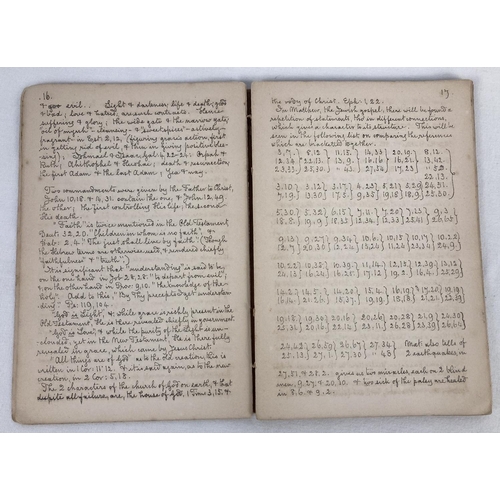 16.
& good & evil. Light & darkness; life & death; good
& bad; love & hatred, are such contrasts. Also are
suffering & glory; the wide gate & the narrow gate;
oil of myrrh - cleansing - & "sweet spices" - actively
fragrant in Est. 2.12, (figuring grace acting, first
in getting rid of evil, & then in giving positive bles-
sing); Ishmael & Isaac, Gal. 4.22-31; Orpah &
Ruth; Ahithophel & Hushai; death & resurrection,
the first Adam & the last Adam; Yea & nay.
Two commandments were given by the Father to Christ,
John 10.18. & 14.31. contain the one; & John 12.49.
the other; the first controlling His life, the second
His death.
"Faith" is twice mentioned in the Old Testament
Deut. 32.20. "Children in whom is no faith", &
Hab. 2.4. "The just shall live by faith" (Though
the Hebrew terms are otherwise used, & rendered chiefly
"faithfulness" & "truth".)
It is significant that "understanding" is said to be
on the one hand in Job 28.28. "to depart from evil",
& on the other hand in Prov. 9.10. "the knowledge of the
holy". Add to this, "By Thy precepts I get understan-
ding". Ps. 119.104.
"God is Light", & while grace is richly present in the
Old Testament, He is there presented chiefly in government.
"God is Love", & while the purity of the Light is un-
clouded, yet in the New Testament, He is thus fully
revealed in grace, which came by Jesus Christ.
"All things are of God" as to the old creation, this is
written in 1 Cor. 11.12. & it is said again, as to the new
creation, in 2 Cor. 5.18.
The 2 characters of the church of God on earth, & that
despite all failure, are, the house of God, 1 Tim. 3.15. &
17.
the body of Christ. Eph. 1.22.
In Matthew, the Jewish gospel, there will be found a
repetition of statements, two in different connections,
which give a character to its structure. This will be
seen in the following list on comparing the references
which are bracketed together.
3.7. } 8.12 } 11.15. } 14.33 } 20.19. } 8.12.
12.34 } 22.13. } 13.9. } 16.16 } 16.21. } 13.42.
23.33. } 25.30. } " 43. } 27.54 } 17.23 } " 50.
22.13.
3.10. } 3.12. } 3.17. } 4.23. } 5.29. } 24.51.
7.19. } 13.30 } 17.5. } 9.35. } 18.9. } 25.30.
5.30. } 5.32. } 6.15. } 7.11. } 7.20. } 9.3.
18.8. } 19.9. } 18.35 } 12.34. } 12.33 } 26.65.
9.13 } 9.27. } 9.34 } 10.6. } 10.15. } 10.17. } 10.22.
12.7 } 20.30 } 12.24 } 15.24 } 11.24 } 24.9.
10.22. } 10.38. } 10.39. } 11.14 } 12.39.
24.13. } 16.24. } 16.25. } 17.12. } 16.4.
14.2. } 14.5. } 14.20. } 16.19. } 19.19.
16.14 } 21.26. } 15.37. } 18.18. } 22.39.
19.18. } 19.30 } 20.16. } 20.26. } 20.28. } 21.9. } 24.30.
23.11. } 26.28. } 23.39 } 26.64
24.42. } 26.67. } 27.34. } Matt. also tells of
25.13. } 27.30. } " 48 } 2 earthquakes, in
27.51. & 28.2. gives us two miracles, each on 2 blind
men, 9.27. & 20.30. & two sick of the palsy are healed
in 8.6. & 9.2.